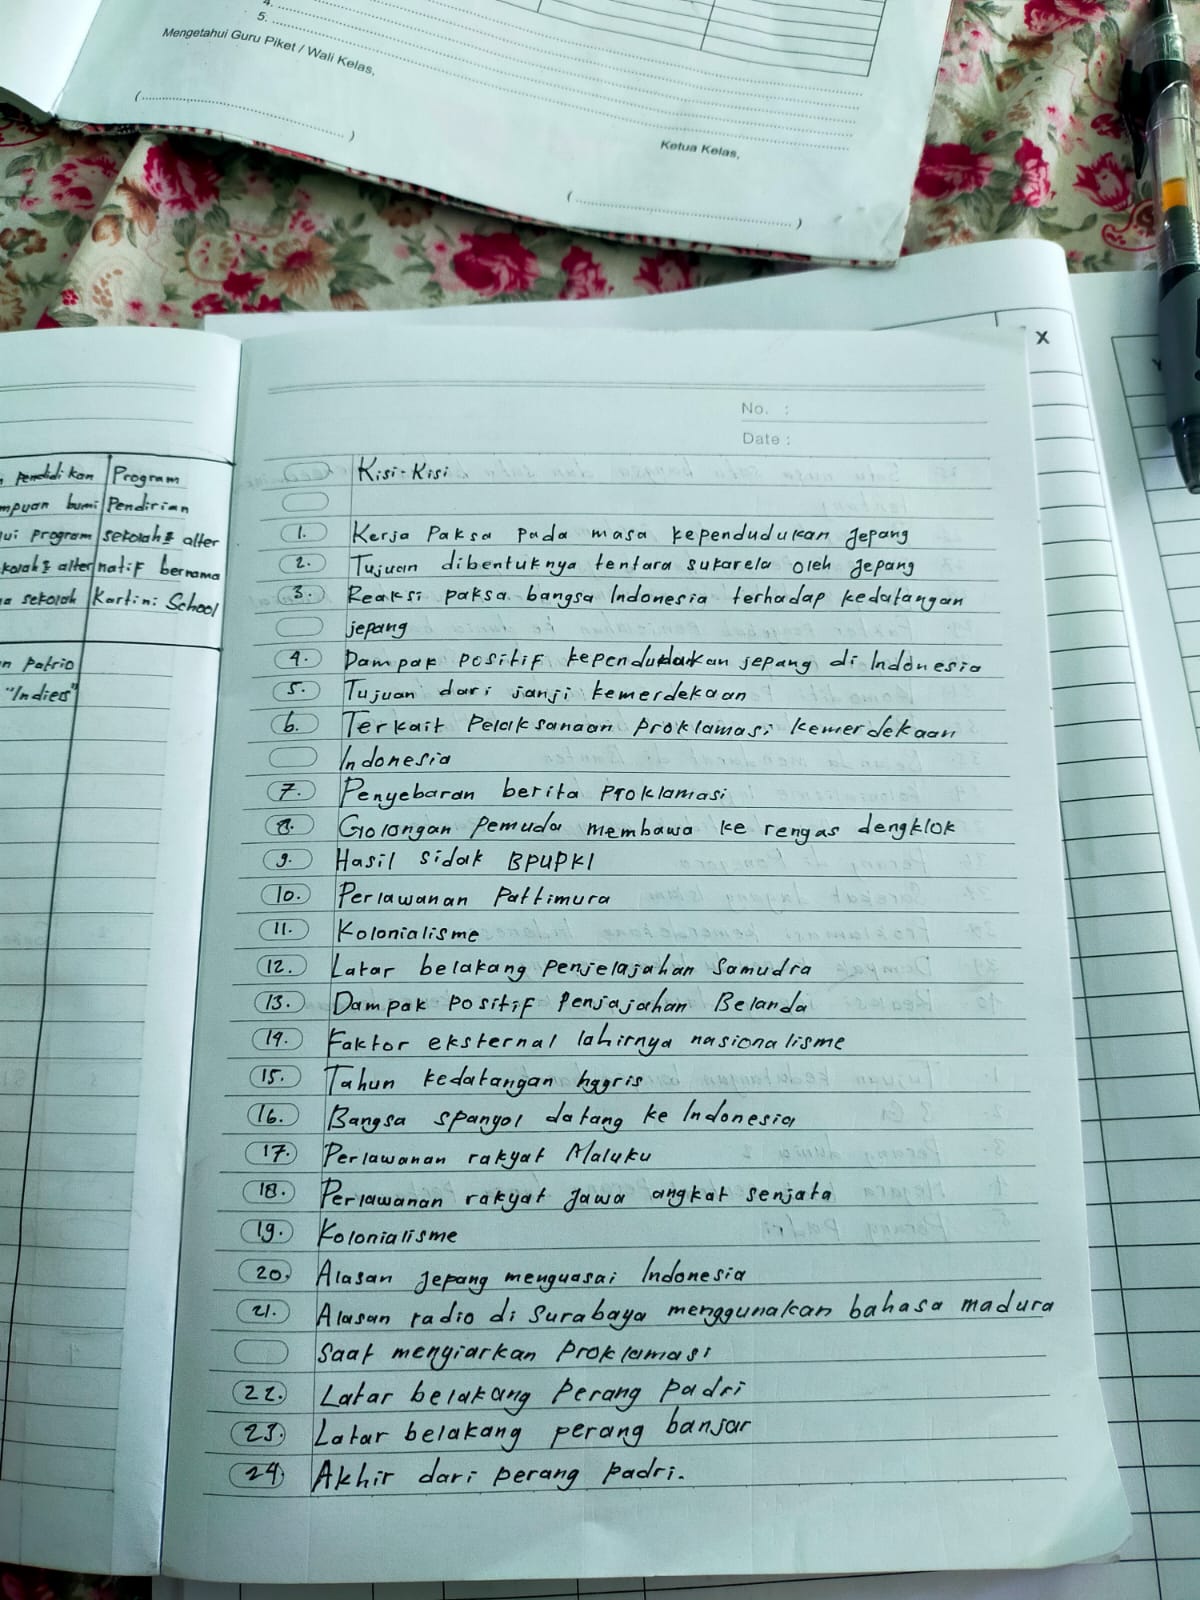 4.
5.
Mengetahui Guru Piket / Wali Kelas,
(.................................)
Ketua Kelas,
(.................................)
X
No. :
Date :
pendidikan Program
mpuan bumi Pendirian
ui program sekolah² alter
kolah² alter natif bernama
a sekolah Kartini School
n Patrio
"Indiers"
Kisi-Kisi
1. Kerja Paksa pada masa kependudukan Jepang
2. Tujuan dibentuknya tentara sukarela oleh Jepang
3. Reaksi paksa bangsa Indonesia terhadap kedatangan
jepang
4. Dampak positif kependudukan jepang di Indonesia
5. Tujuan dari janji kemerdekaan
6. Terkait Pelaksanaan Proklamasi kemerdekaan
Indonesia
7. Penyebaran berita Proklamasi
8. Golongan Pemuda membawa ke rengas dengklok
9. Hasil sidak BPUPKI
10. Perlawanan Pattimura
11. Kolonialisme
12. Latar belakang Penjelajahan Samudra
13. Dampak positif Penjajahan Belanda
14. Faktor eksternal lahirnya nasionalisme
15. Tahun kedatangan Inggris
16. Bangsa spanyol datang ke Indonesia
17. Perlawanan rakyat Maluku
18. Perlawanan rakyat Jawa angkat senjata
19. Kolonialisme
20. Alasan Jepang menguasai Indonesia
21. Alasan radio di Surabaya menggunakan bahasa madura
Saat menyiarkan Proklamasi
22. Latar belakang Perang Padri
23. Latar belakang perang banjar
24. Akhir dari perang padri.